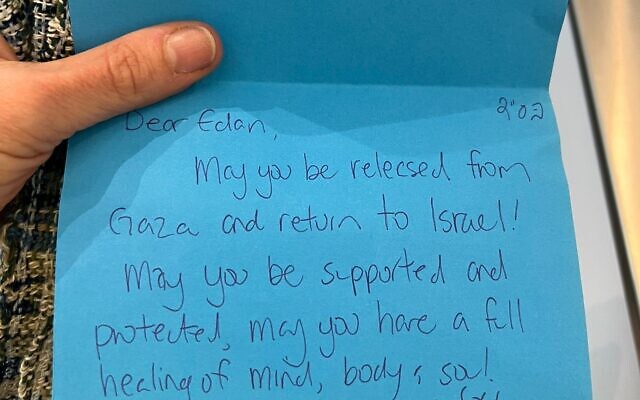 בס"ד
Dear Edan,
May you be released from
Gaza and return to Israel!
May you be supported and
protected, may you have a full
healing of mind, body & soul!